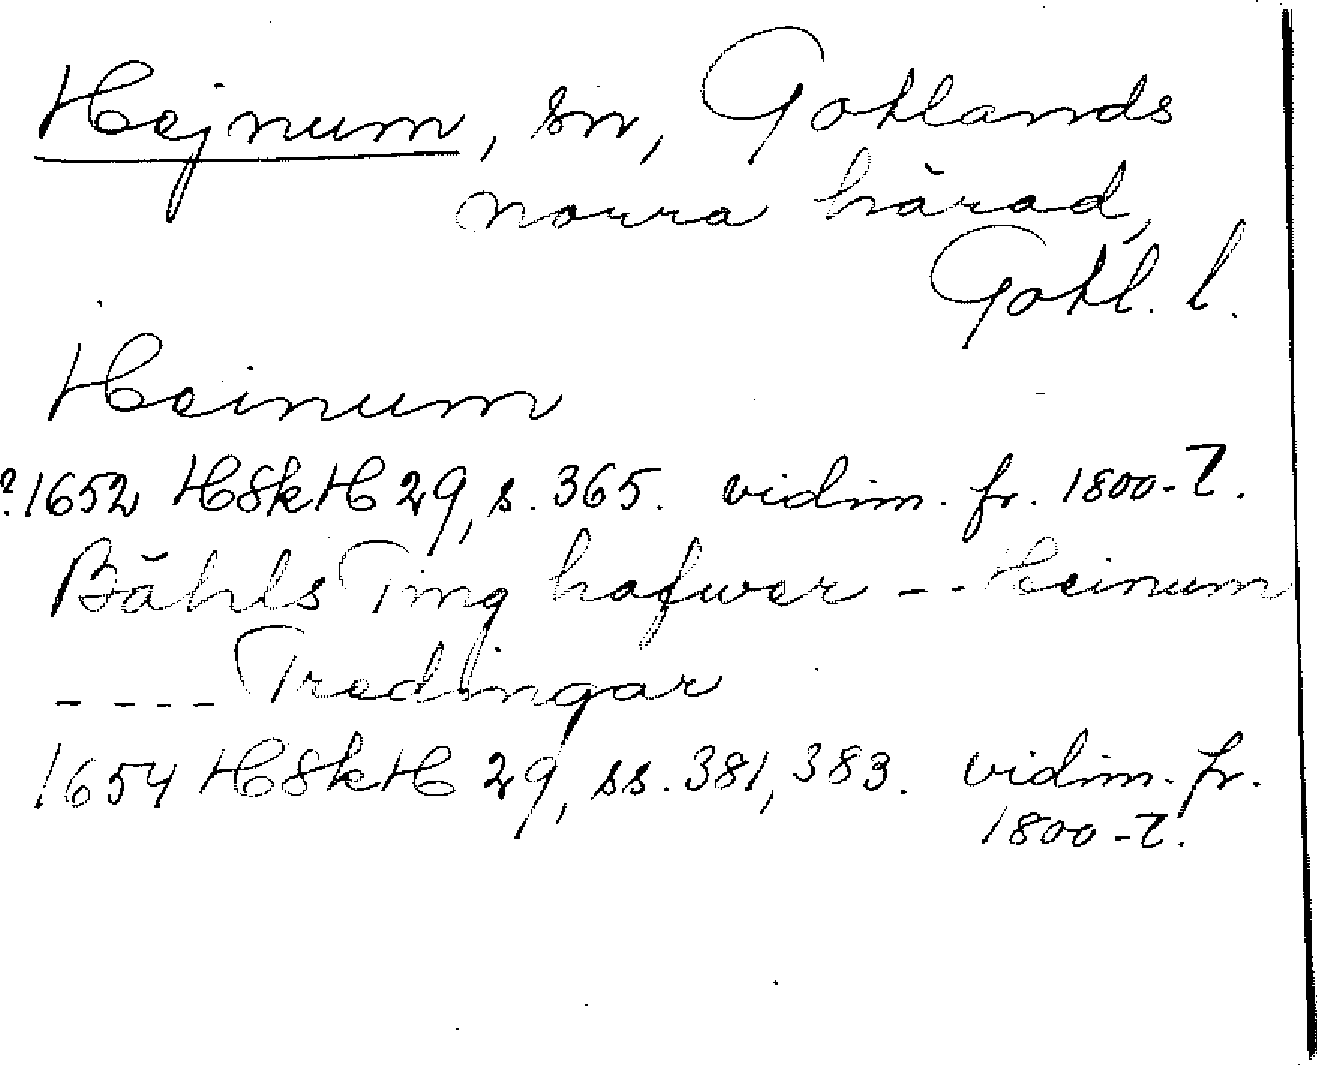 Hejnum, sn, Gotlands
norra härad,
Gotl. l.
Heinum
?1652 HSkH 29, s. 365. vidim. fr. 1800-t.
Bähls Ting hafwer -- Heinum
---- Tredingar
1654 HSkH 29, ss. 381, 383. vidim. fr.
1800-t.